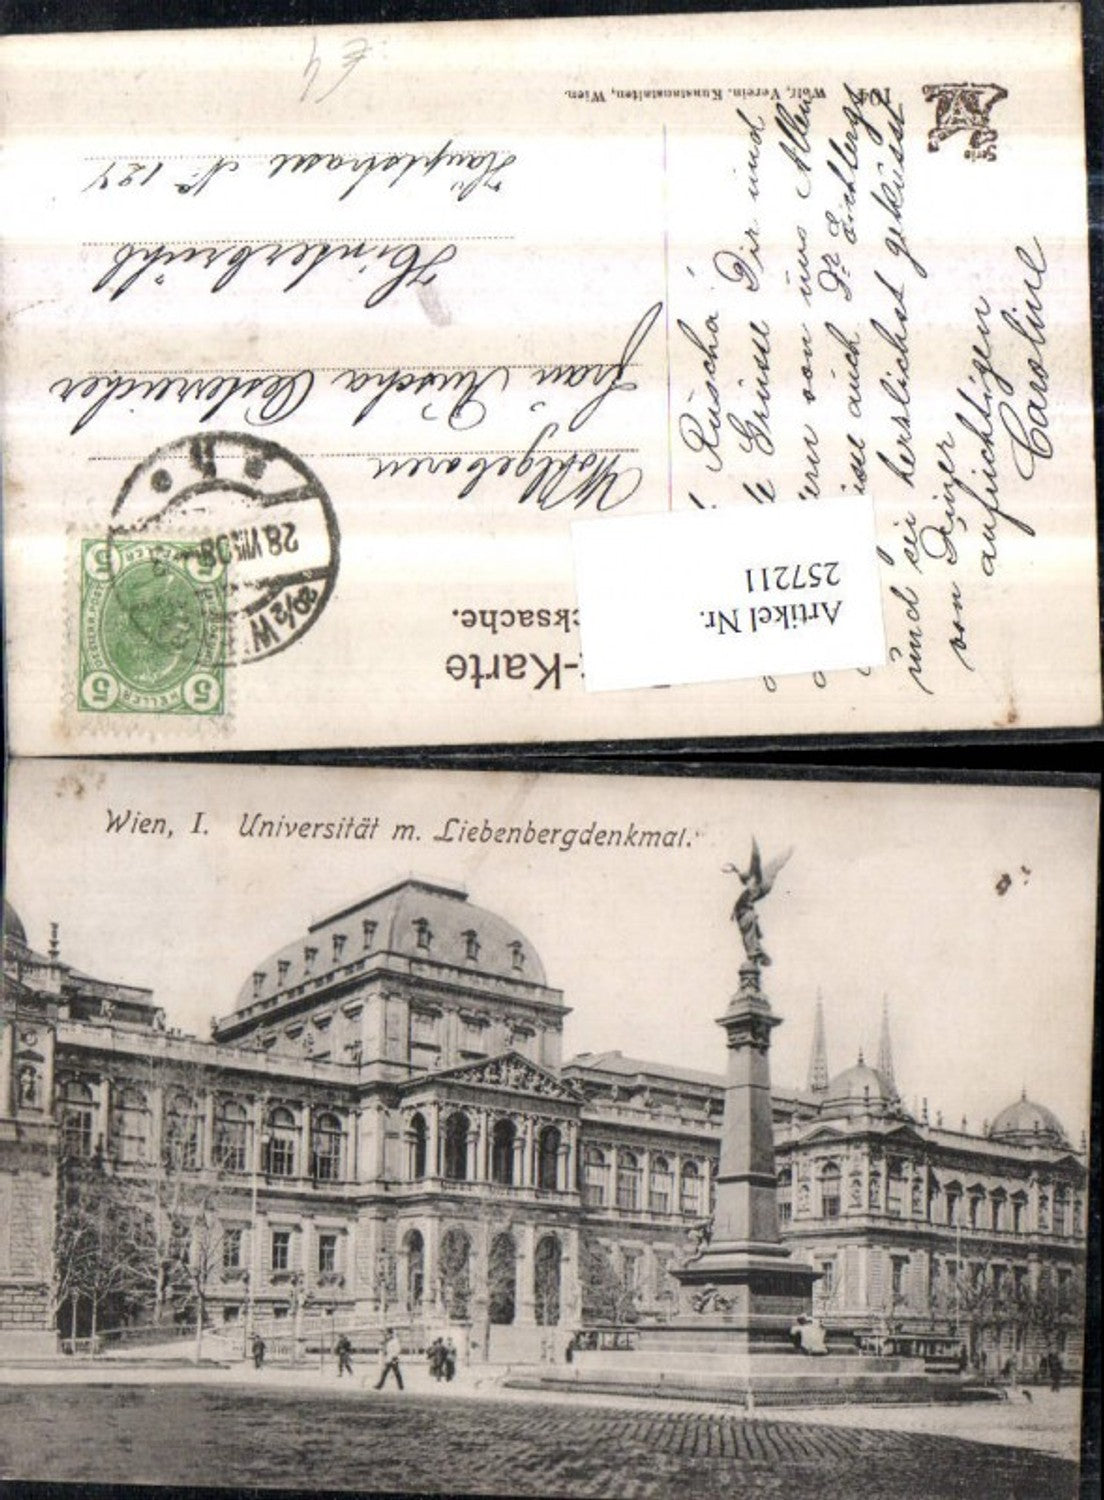 € 4
104 Wolf, Verein. Kunstanstalten, Wien.
-Karte
cksache.
Artikel Nr.
257211
5 5
5 5
HELLER
28.VIII.08
Wohlgeboren
Frau Rüscha Oestereicher
Hinterbrühl
Hauptstrasse No 124
Rüscha!
Grüsse Dir und
von uns Allen
auch Dr Eichbergs
und sei herzlichst geküsst
von Deiner
aufrichtigen
Caroline
Wien, I. Universität m. Liebenbergdenkmal.